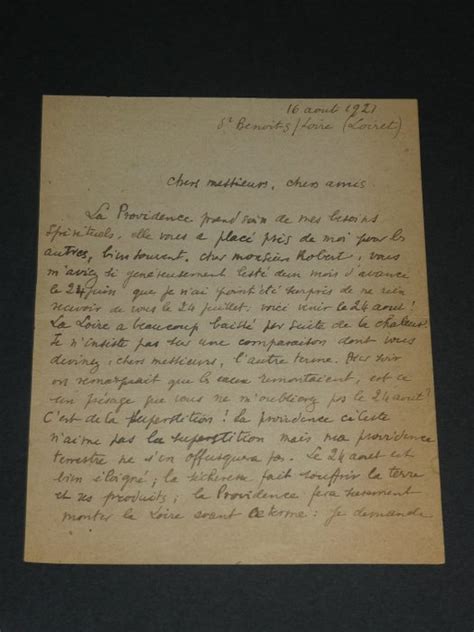 16 aout 1921
St Benoit s/Loire (Loiret)
chers messieurs, chers amis
La Providence prend soin de mes besoins
spirituels, elle vous a placé près de moi pour les
autres, bien souvent. cher monsieur Robert, vous
m'aviez si généreusement lesté d'un mois d'avance
le 24 juin que je n'ai point été surpris de ne rien
recevoir de vous le 24 juillet: voici venir le 24 aout!
La Loire a beaucoup baissé par suite de la chaleur.
Je n'insiste pas sur une comparaison dont vous
devinez, chers messieurs, l'autre terme. Hier soir
on remarquait que les eaux remontaient, est ce
un présage que vous ne m'oublierez pas le 24 aout?
C'est de la superstition! la providence céleste
n'aime pas la superstition mais ma providence
terrestre ne s'en offusquera pas. Le 24 aout est
bien éloigné; la sécheresse fait souffrir la terre
et ses produits; la Providence fera surement
monter la Loire avant ce terme: je demande